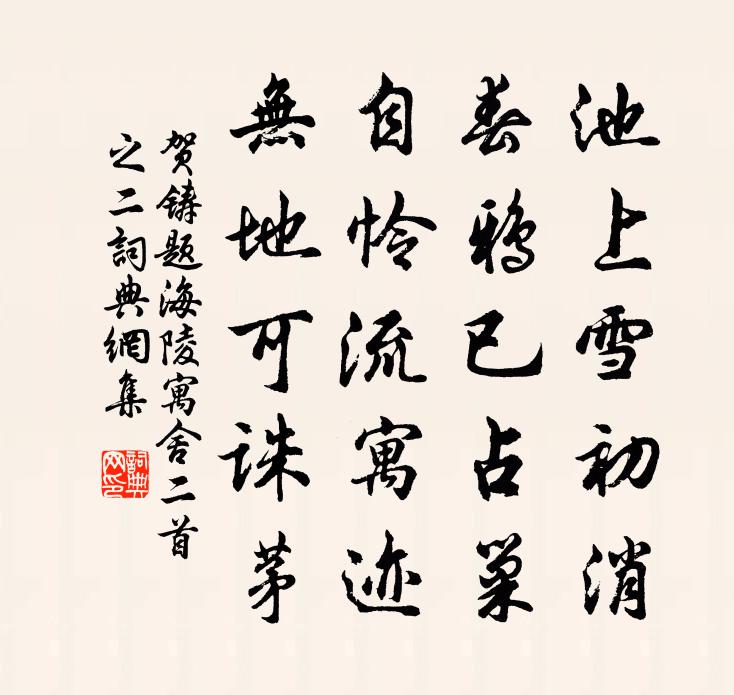 池上雪初消
春鸦已占巢
自怜流寓迹
無地可誅茅
贺鑄题海陵寓舍二首
之二詞典網集
詞典
网印